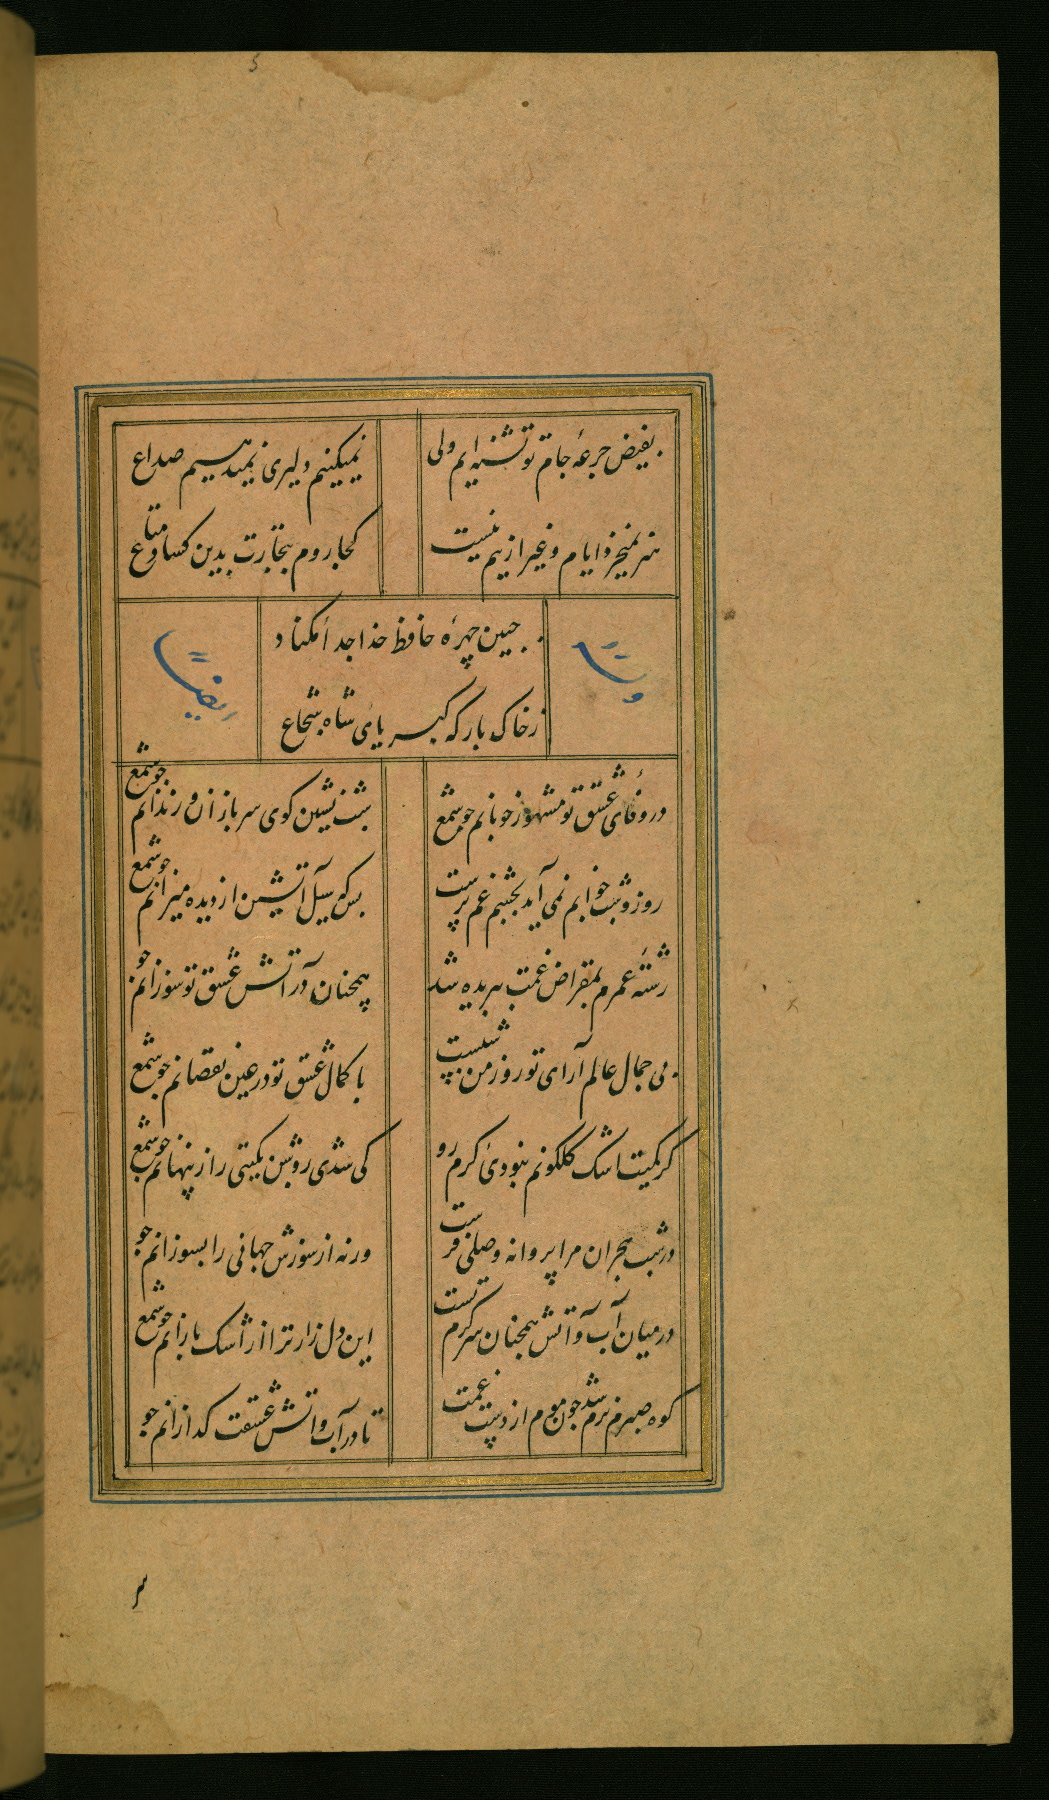 بفیض جرعهٔ جام تو تشنه ایم ولی
نمیکنیم دلیری نمیدهیم صداع
هنر نمیخرد ایام و غیر ازینم نیست
کجا روم بتجارت بدین کساد متاع
جبین چهرهٔ حافظ خدا جدا مکناد
زخاک بارکه کبریایٔ شاه شجاع
وله
ایضاً
در وفایٔ عشق تو مشهور خوبانم جو شمع
شب نشین کوی سربازان و رندانم جو شمع
روز و شب خوابم نمی آید بچشم غم پرست
بس که سیل آتشین از دیده میرانم جو شمع
رشتهٔ عمرم بمقراض غمت ببریده شد
همچنان در آتش عشق تو سوزانم جو
بی جمال عالم آرای تو روز من شبست
با کمال عشق تو در عین نقصانم جو شمع
کر کمیت اشک کلکونم نبودیٔ کرم رو
کی شدی روشن بکیتی راز پنهانم جو شمع
در شب هجران مرا پروانه وصلی فرست
ورنه از سوزش جهانی را بسوزانم جو
در میان آب و آتش همچنان سرکرم تست
این دل زار نزار اشک بارانم جو شمع
کوه صبرم نرم شد جون موم از دست غمت
تا در آب و آتش عشقت کدازانم جو